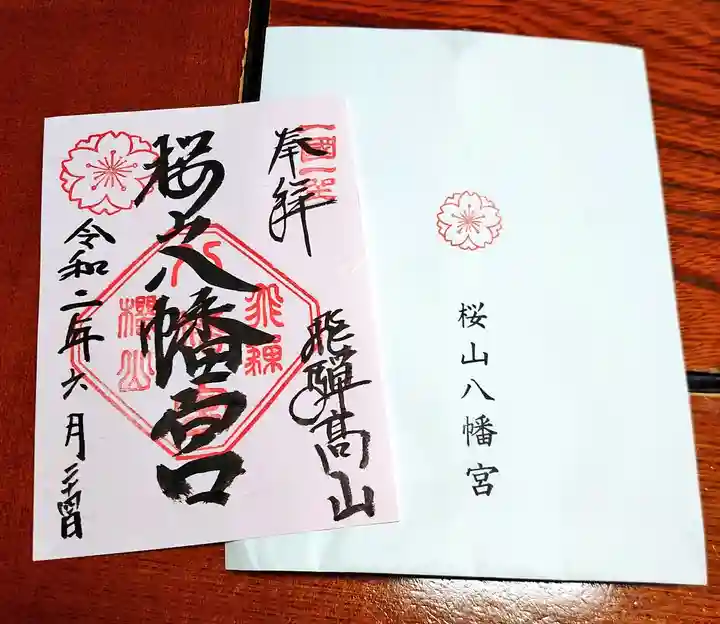 奉拝
飛騨高山
桜山八幡宮
令和二年六月二十四日
飛騨
櫻山
桜山八幡宮